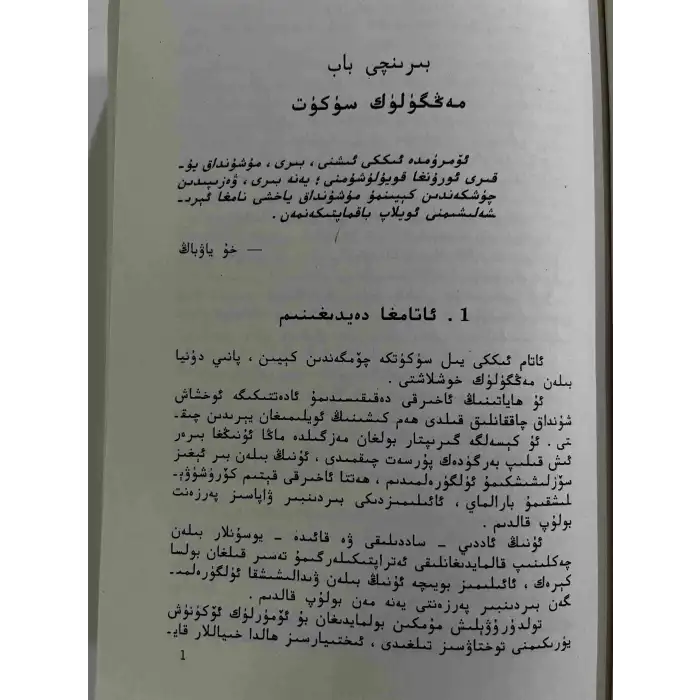 بىرىنچى باب
مەڭگۈلۈك سۈكۈت
ئۆمرۈمدە ئىككى ئىشنى ، بىرى ، مۇشۇنداق يۇ‑
قىرى ئورۇنغا قويۇلۇشۇمنى ؛ يەنە بىرى ، ۋەزىپىدىن
چۈشكەندىن كېيىنمۇ مۇشۇنداق ياخشى نامغا ئېرى‑
شەلىشىمنى ئويلاپ باقماپتىكەنمەن .
— خۇ ياۋباڭ
1 . ئاتامغا دەيدىغىنىم
ئاتام ئىككى يىل سۈكۈتكە چۆمگەندىن كېيىن ، پانىي دۇنيا
بىلەن مەڭگۈلۈك خوشلاشتى .
ئۇ ھاياتىنىڭ ئاخىرقى دەقىقىسىدىمۇ ئادەتتىكىگە ئوخشاش
شۇنداق چاققانلىق قىلدى ھەم كىشىنىڭ ئويلىمىغان يېرىدىن چىق‑
تى . ئۇ كېسەلگە گىرىپتار بولغان مەزگىلدە ماڭا ئۇنىڭغا بىرەر
ئىش قىلىپ بەرگۈدەك پۇرسەت چىقمىدى ، ئۇنىڭ بىلەن بىر ئېغىز
سۆزلىشىشكىمۇ ئۈلگۈرەلمىدىم ، ھەتتا ئاخىرقى قېتىم كۆرۈشۈۋې‑
لىشقىمۇ بارالماي ، ئائىلىمىزدىكى بىردىنبىر ۋاپاسىز پەرزەنت
بولۇپ قالدىم .
ئۇنىڭ ئاددىي – ساددىلىقى ۋە قائىدە – يوسۇنلار بىلەن
چەكلىنىپ قالمايدىغانلىقى ئەتراپتىكىلەرگىمۇ تەسىر قىلغان بولسا
كېرەك ، ئائىلىمىز بويىچە ئۇنىڭ بىلەن ۋىدالىشىشقا ئۈلگۈرەلمى‑
گەن بىردىنبىر پەرزەنتى يەنە مەن بولۇپ قالدىم .
تولدۇرۇۋېلىش مۇمكىن بولمايدىغان بۇ ئۆمۈرلۈك ئۆكۈنۈش
يۈرىكىمنى توختاۋسىز تىلغىدى ، ئىختىيارسىز ھالدا خىياللار قاي‑
1